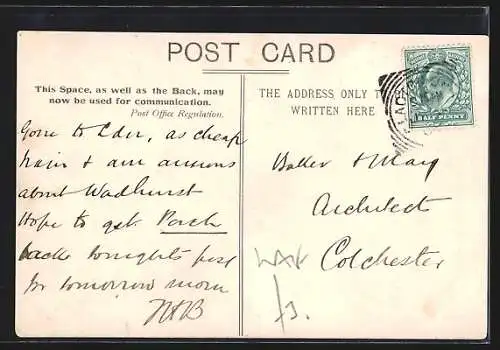 POST CARD
This Space, as well as the Back, may
now be used for communication.
Post Office Regulation.
THE ADDRESS ONLY T
WRITTEN HERE
HALF PENNY
Gone to Eden, as cheap
train & am anxious
about Wadhurst
Hope to get Porch
back tonights post
for tomorrow morn
Baller & May
Architect
Colchester
/3.